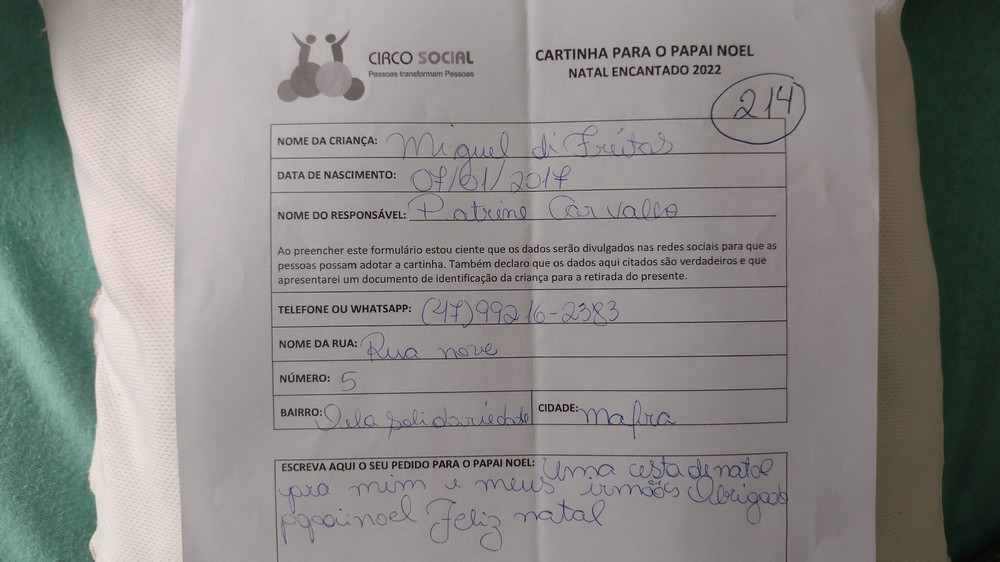 CIRCO SOCIAL
Pessoas transformam Pessoas
CARTINHA PARA O PAPAI NOEL
NATAL ENCANTADO 2022
214
NOME DA CRIANÇA: Miguel di Freitas
DATA DE NASCIMENTO: 07/01/2017
NOME DO RESPONSÁVEL: Patrine Carvalho
Ao preencher este formulário estou ciente que os dados serão divulgados nas redes sociais para que as
pessoas possam adotar a cartinha. Também declaro que os dados aqui citados são verdadeiros e que
apresentarei um documento de identificação da criança para a retirada do presente.
TELEFONE OU WHATSAPP: (47)99216-2383
NOME DA RUA: Rua nove
NÚMERO: 5
BAIRRO: Vila Solidariedade CIDADE: Mafra
ESCREVA AQUI O SEU PEDIDO PARA O PAPAI NOEL: Uma cesta de natal
pra mim e meus irmãos Obrigado
papai noel Feliz natal